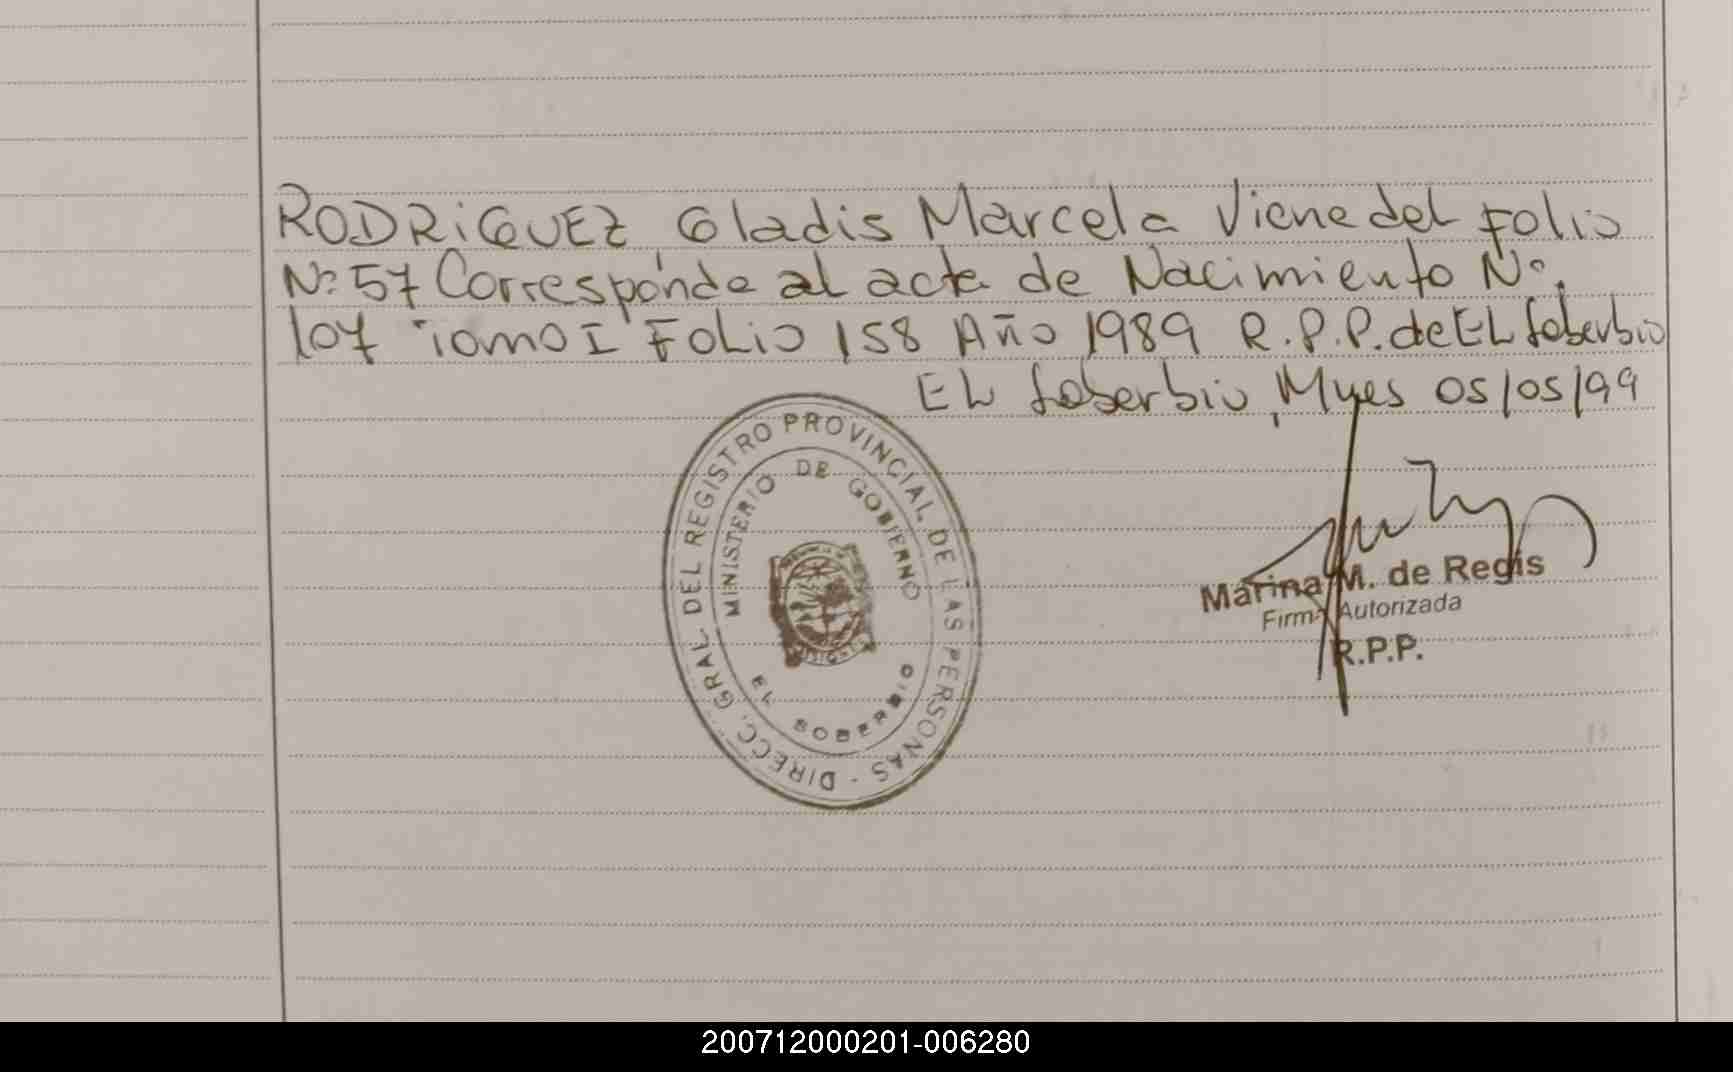 RODRIGUEZ, Gladis Marcela Viene del Folio
Nº 57 Corresponde al acta de Nacimiento Nº.
107 Tomo I Folio 158 Año 1989 R.P.P. de EL Soberbio
EL Soberbio, Mnes 05/05/99
DIRECC. GRAL. DEL REGISTRO PROVINCIAL DE LAS PERSONAS -
MINISTERIO DE GOBIERNO
EL SOBERBIO
Marina M. de Regis
Firma Autorizada
R.P.P.
200712000201-006280